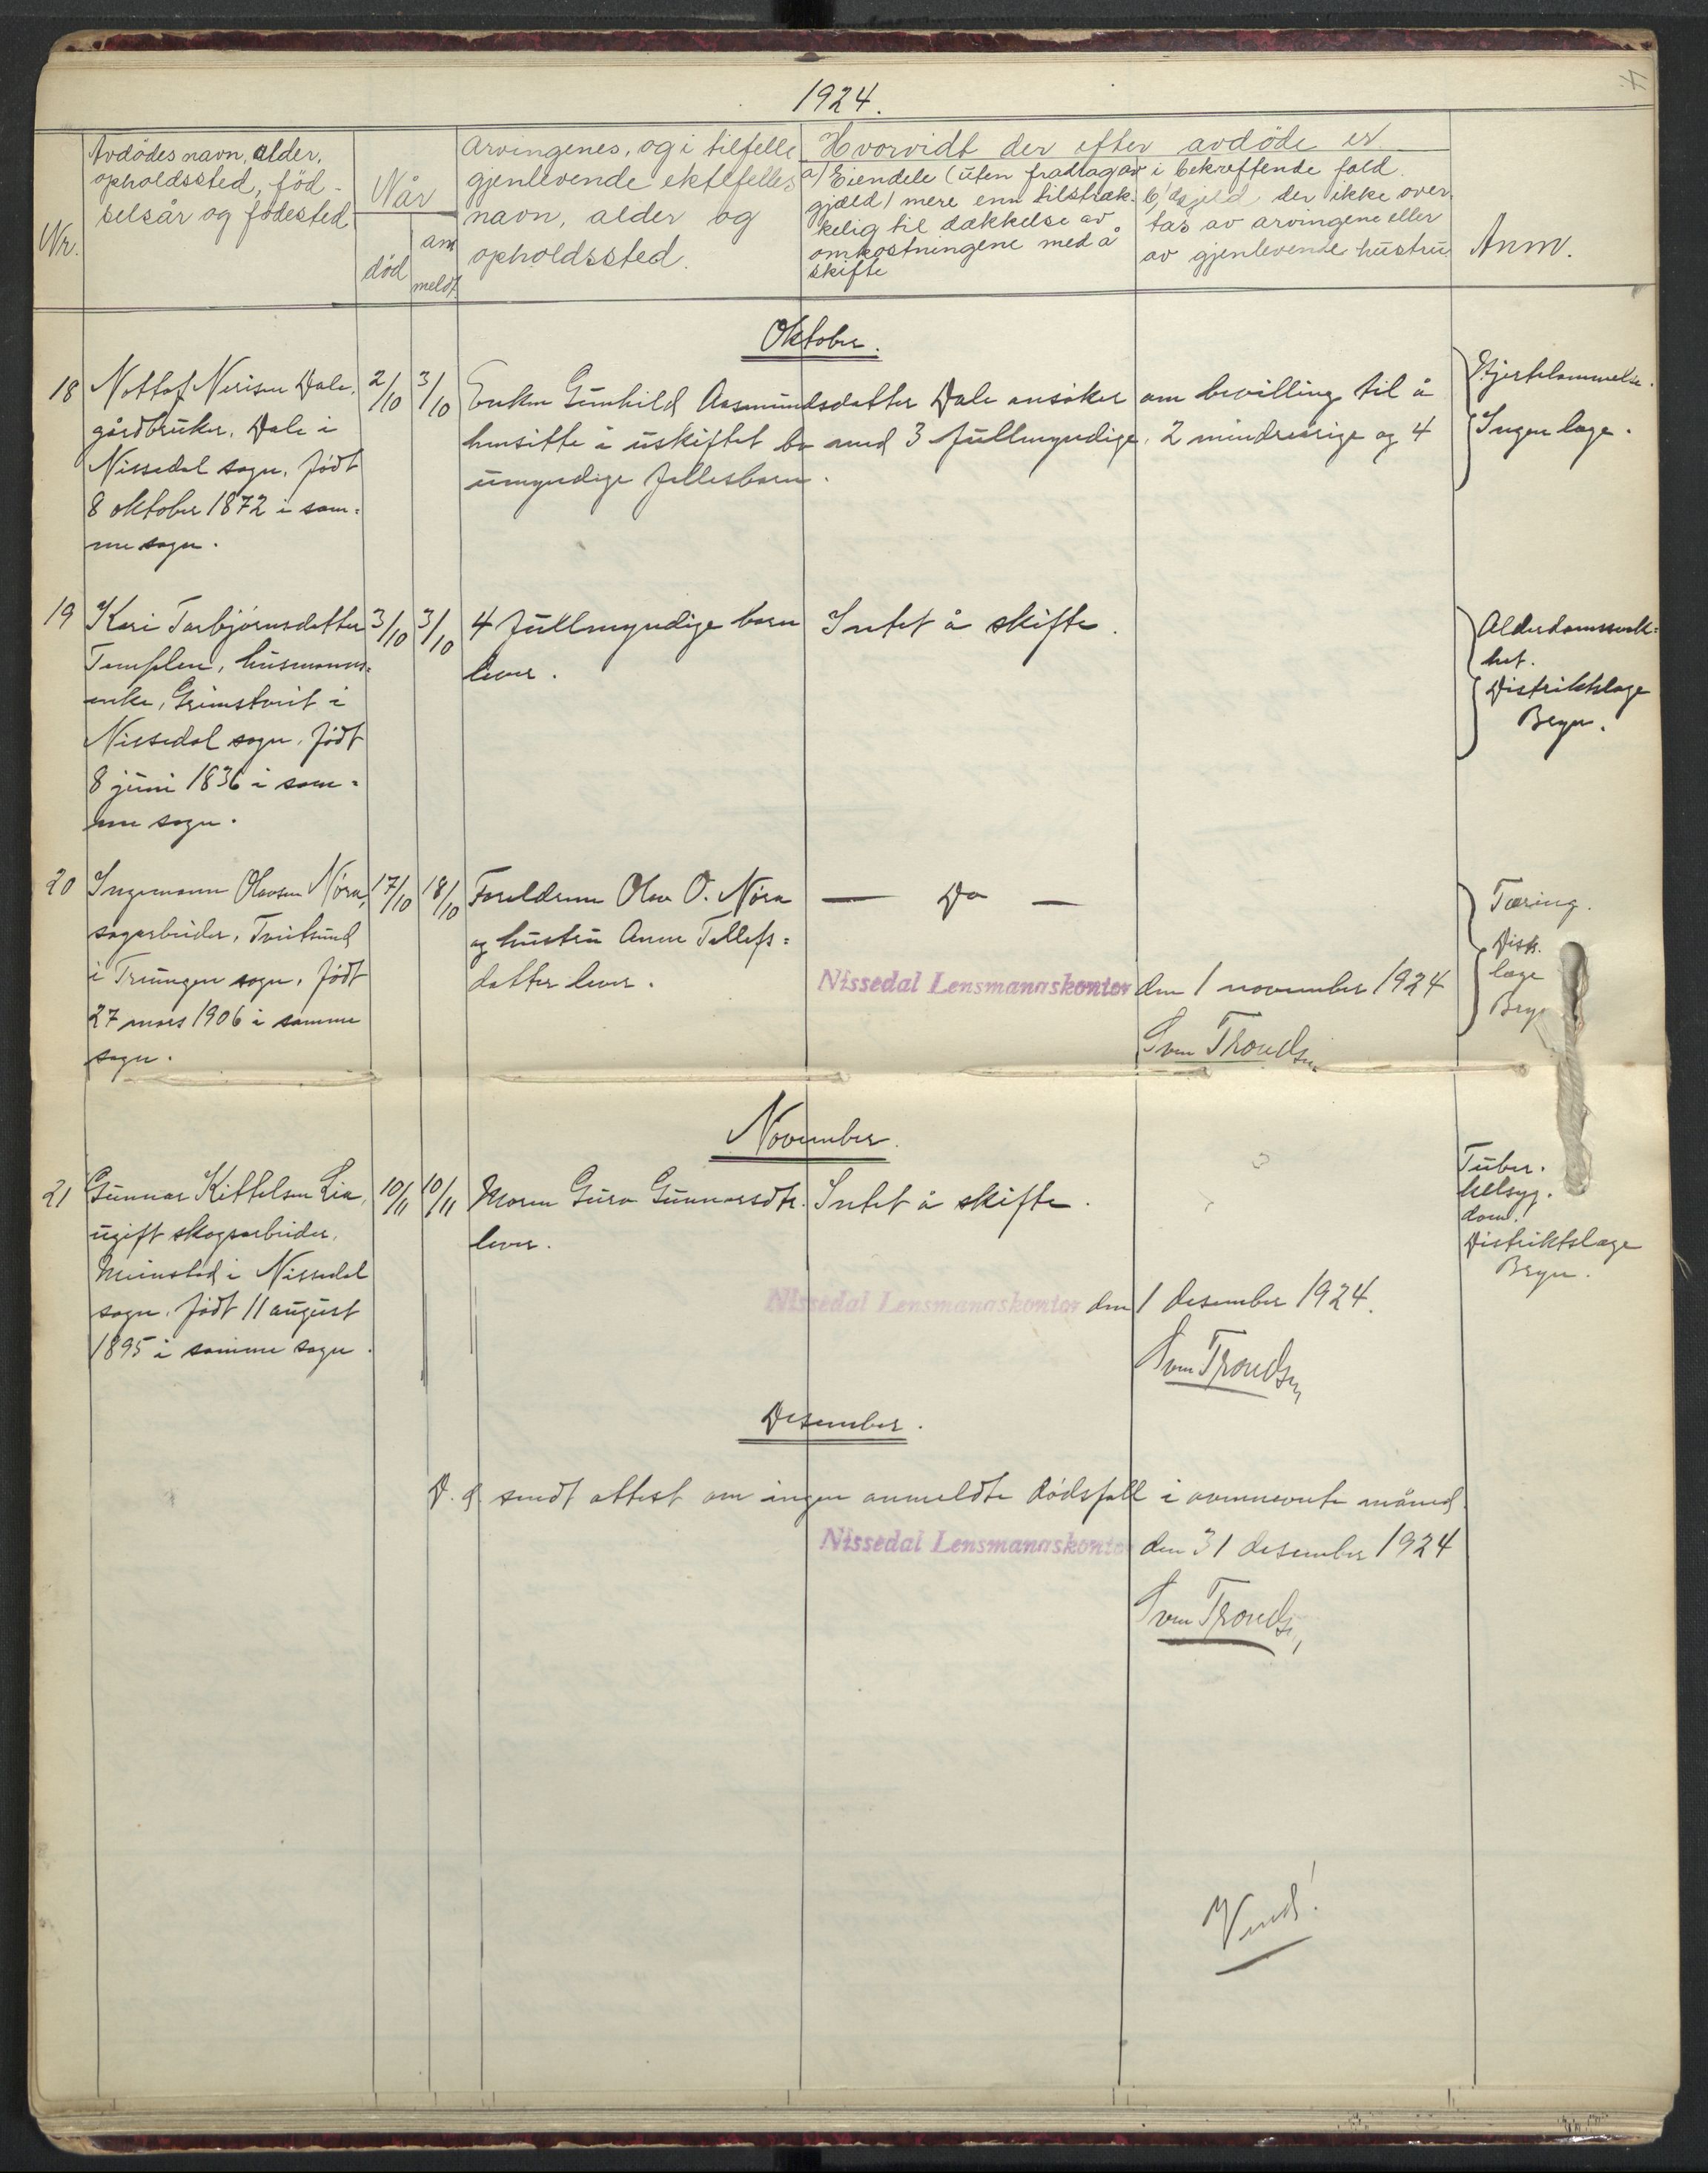 4
1924.
Nr.
Avdödes navn, alder,
opholdssted, föd-
selsår og födested.
Når
död
an
meldt
Arvingenes, og i tilfelle
gjenlevende ektefelles
navn, alder og
opholdssted.
Hvorvidt der efter avdöde er
a) Eiendele (uten fradrag av
gjæld) mere enn tilstræk-
kelig til dækkelse av
omkostningene med å
skifte
i bekreftende fald
b) gjeld der ikke over-
tas av arvingene eller
av gjenlevende hustru
Anm.
Oktober.
18
Nottof Nerisen Dale,
gårdbruker, Dale i
Nissedal sogn, født
8 oktober 1872 i sam-
me sogn.
2/10
3/10
Enken Gunhild Aasmundsdatter Dale ansøker om bevilling til å
hensitte i uskiftet bo med 3 fullmyndige, 2 mindreårige og 4
umyndige fellesbarn.
Hjertelammelse.
Ingen læge.
19
Kari Torbjørnsdatter
Templen, husmanns-
enke, Grimstveit i
Nissedal sogn, født
8 juni 1836 i sam-
me sogn.
3/10
3/10
4 fullmyndige barn
lever.
Intet å skifte.
Alderdomssvak-
het.
Distriktslæge
Bryn.
20
Ingemann Olavsen Nöra,
sagarbeider, Tveitsund
i Treungen sogn, født
27 mars 1906 i samme
sogn.
17/10
18/10
Foreldrene Olav O. Nöra
og hustru Anne Tellefs-
datter lever.
— Do —
Tæring.
Distr.
læge
Bryn
Nissedal Lensmannskontor den 1 november 1924
Sven Trondsen
November.
21
Gunnar Kittelsen Lia,
ugift skogsarbeider,
Meinstad i Nissedal
sogn, født 11 august
1895 i samme sogn.
10/11
10/11
Moren Guro Gunnarsdtr.
lever.
Intet å skifte.
Tuber-
kelsyg-
dom.
Distriktslæge
Bryn.
Nissedal Lensmannskontor den 1 desember 1924.
Sven Trondsen
Desember.
D. d. sendt attest om ingen anmeldte dødsfall i ovennevnte måned.
Nissedal Lensmannskontor den 31 desember 1924
Sven Trondsen
Vend!